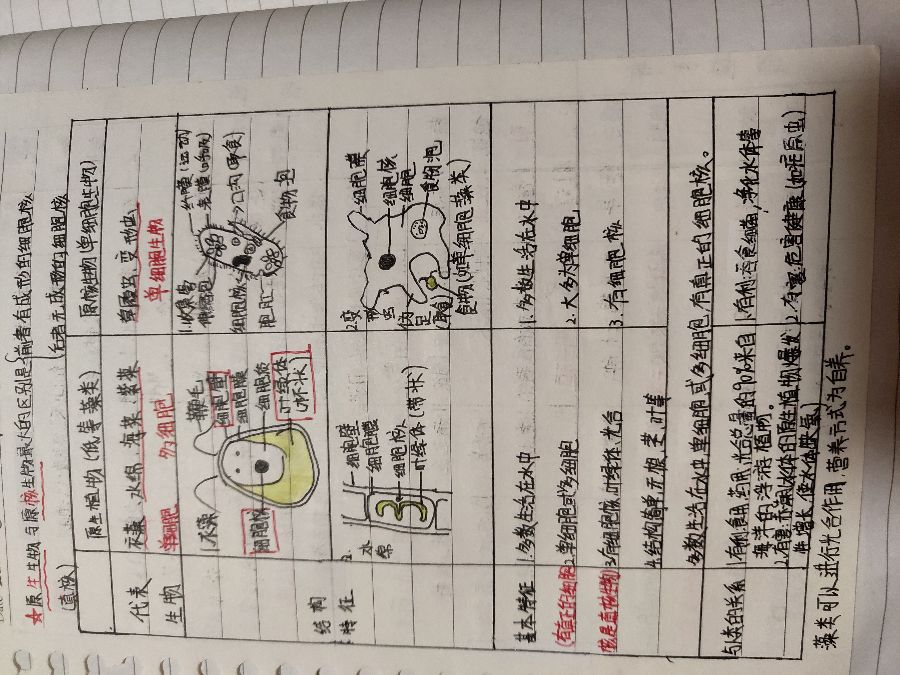 ☆原生生物与原核生物最大的区别是前者有成形的细胞核
(真核)
后者无成形的细胞核
原生植物(低等藻类)
原生动物(单细胞生物)
代表
生物
衣藻、水绵、海带、紫菜
单细胞
多细胞
草履虫、变形虫
单细胞生物
结构
特征
1.衣藻
鞭毛
细胞壁
细胞膜
细胞质
叶绿体
(杯状)
细胞核
1.草履虫
纤毛(运动)
表膜(呼吸)
口沟(取食)
食物泡
细胞核
胞肛
2.水绵
细胞壁
细胞膜
细胞核
叶绿体(带状)
2.变形虫
细胞膜
细胞核
细胞质
食物泡
伪足
食物(如单细胞藻类)
基本特征
(有真正的细胞
核是真核生物)
1.多数生活在水中
2.单细胞或多细胞
3.有细胞核、叶绵体、光合
4.结构简单无根、茎、叶等
1.多数生活在水中
2.大多为单细胞
3.有细胞核
多数生活在水中,单细胞或多细胞,有真正的细胞核。
与人类的关系
1.有利:食用,药用,光合总量的90%来自
海洋的浮游植物。
2.有害:赤潮(水体的原生植物爆发
性增长,使水体缺氧)
1.有利:吞食细菌,净化水体等
2.有害:危害健康(如疟原虫)
藻类可以进行光合作用,营养方式为自养。